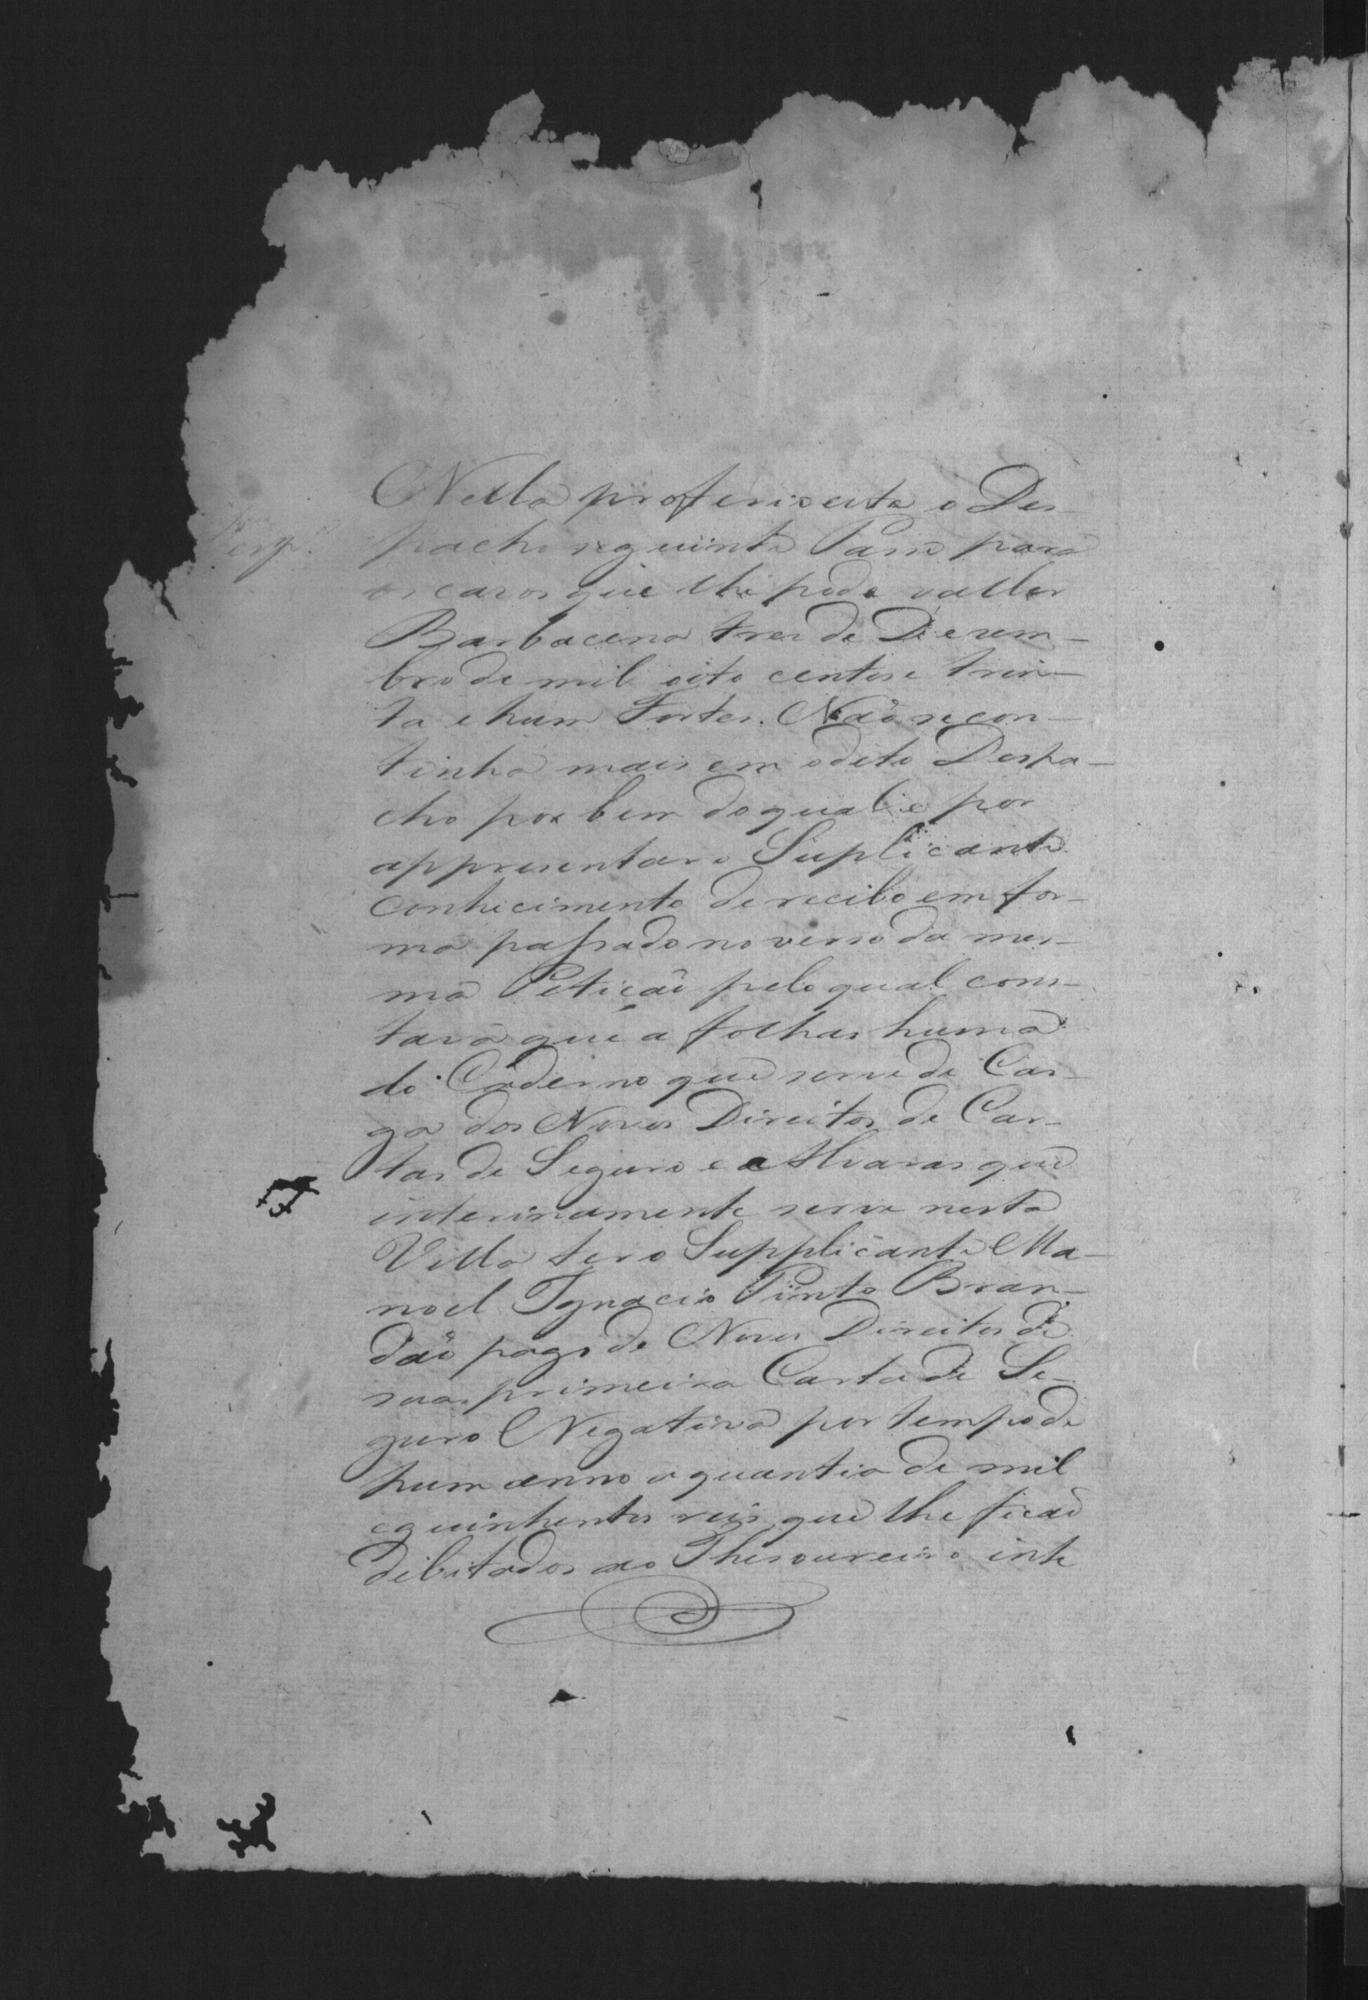 Nella proferiseite o Des-
Desp.º
pacho seguinte Passe para
os cazos que lhe pode valler
Barbacena tres de Dezem-
bro de mil oito centos e trin-
ta e hum Fortes. Não se con-
tinha mais em o dito Despa-
cho por bem do qual e por
appresentar o Suplicante
conhecimento de recibo em for-
ma passado no verso da mes-
ma Petição pelo qual cons-
tava que a folhas huma
do Caderno que serve de Car-
ga dos Novos Direitos de Car-
tas de Seguro e Alvaras que
interinamente serve nesta
Villa ter o Supplicante Ma-
noel Ignacio Pinto Bran-
dão pago de Novos Direitos de
sua primeira Carta de Se-
guro Negativa por tempo de
hum anno a quantia de mil
e quinhentos reis que lhe ficão
debitados ao Thesoureiro inte